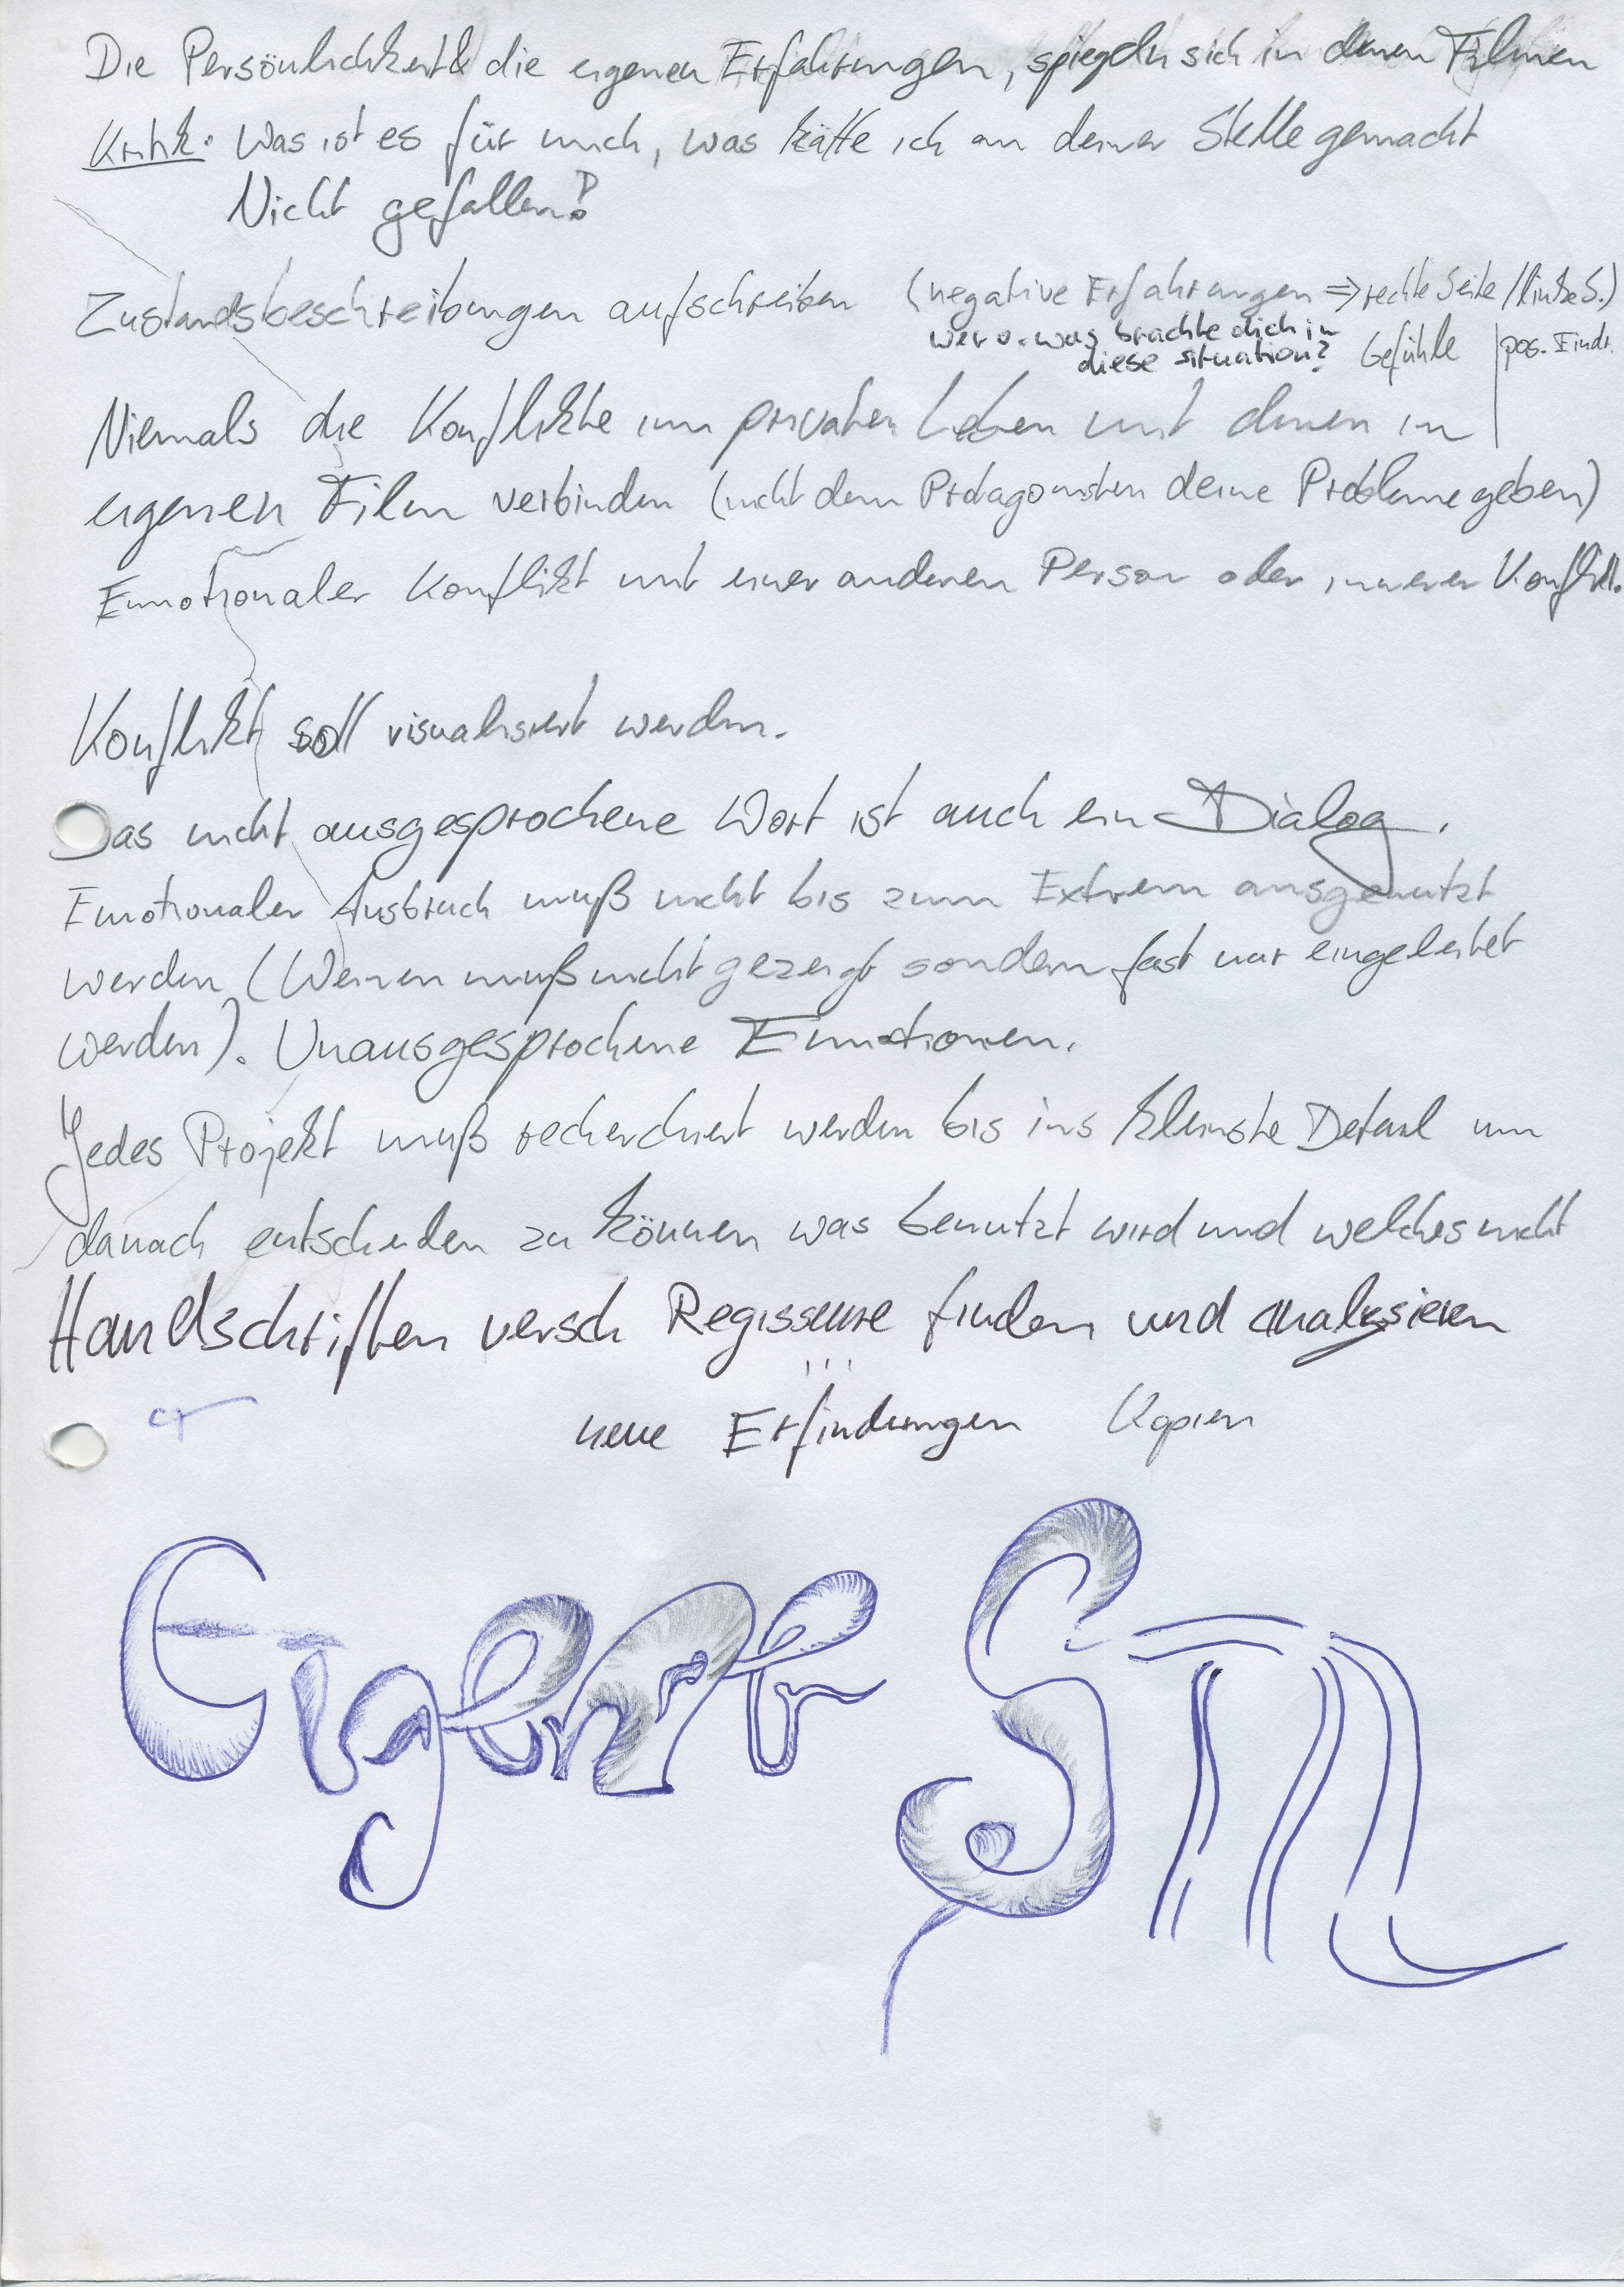 Die Persönlichkeit & die eigenen Erfahrungen, spiegeln sich in deinen Filmen
Kritik: Was ist es für mich, was hätte ich an deiner Stelle gemacht
Nicht gefallen?
Zustandsbeschreibungen aufschreiben (negative Erfahrungen => rechte Seite / linke S.)
wer o. was brachte dich in
diese situation? Gefühle | pos. Eindr.
Niemals die Konflikte im privaten Leben mit denen im
eigenen Film verbinden (nicht dem Protagonisten deine Probleme geben)
Emotionaler Konflikt mit einer anderen Person oder innerer Konflikt.
Konflikt soll visualisiert werden.
Das nicht ausgesprochene Wort ist auch ein Dialog.
Emotionaler Ausbruch muß nicht bis zum Extrem ausgenutzt
werden (Weinen muß nicht gezeigt sondern fast nur eingeleitet
werden). Unausgesprochene Emotionen.
Jedes Projekt muß recherchiert werden bis ins kleinste Detail um
danach entscheiden zu können was benutzt wird und welches nicht
Handschriften versch Regisseure finden und analysieren
neue Erfindungen Kopien